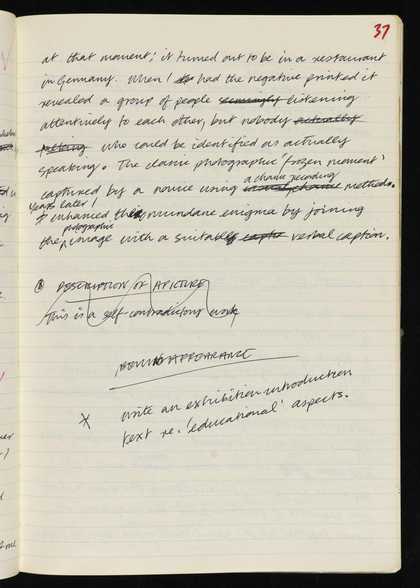 37
at that moment; it turned out to be in a restaurant
in Germany. When I had the negative printed it
revealed a group of people seemingly listening
attentively to each other, but nobody actually
talking who could be identified as actually
speaking. The classic photographic 'frozen moment'
captured by a novice using a chance recording methods.
Years later I
enhanced this mundane enigma by joining
the photographic image with a suitable verbal caption.
DESCRIPTION OF A PICTURE
This is a self contradictory work
APPEARANCE
X write an exhibition introduction
text re. 'educational' aspects.